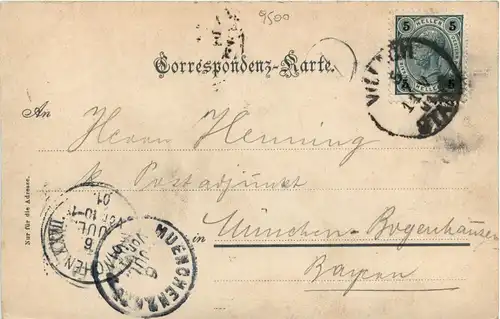 9500
5 HELLER 5
Correspondenz-Karte.
VILLACH
STADT
An
Herrn Henning
k. Postadjunkt
in München-Bogenhausen
Bayern
Nur für die Adresse.
MUENCHEN
JUL.
6
01.